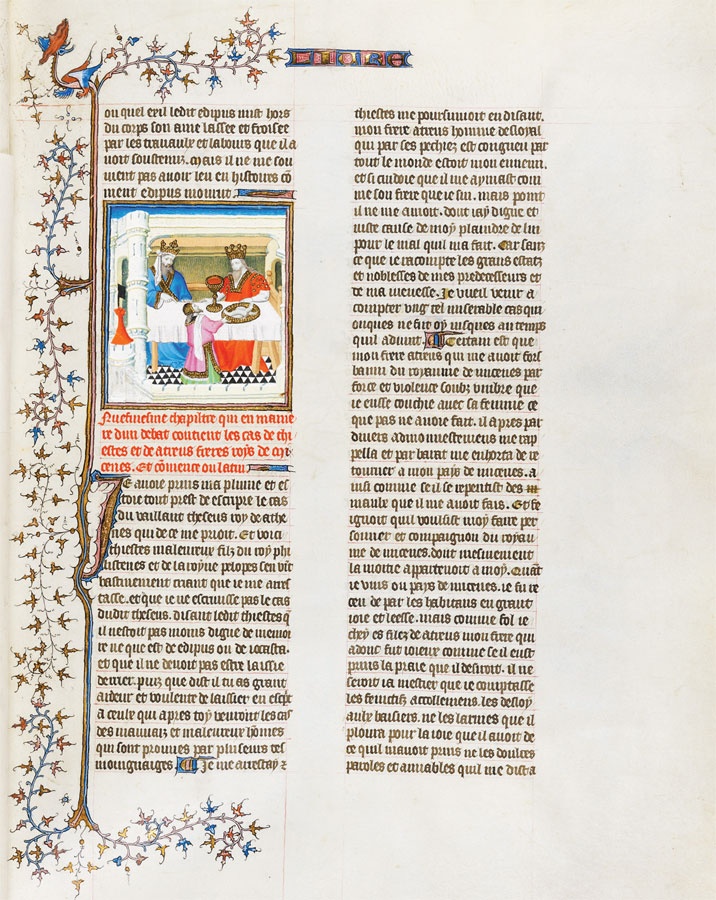 ou quel exil ledit edipus mist hors
du corps son ame lassee et froissee
par les travaulx et labours que il a
voit soustenuz. Mais il ne me sou
vient pas avoir leu en histoires co
ment edipus mourut.
chapiltre qui en manie
re dun debat contient les cas de thi
estes et de atreus freres roys de mi
cenes. Et comence ou latin
Je avoie prins ma plume et es
toie tout prest de escripre le cas
du vaillant theseus roy de athe
nes qui de ce me prioit. Et voici
thiestes maleureux filz du roy phi
listenes et de la royne pelopes sen vit
hastivement criant que ie me arres
tasse. et que ie ne escrivisse pas le cas
dudit theseus. disant ledit thiestes q
il nestoit pas moins digne de memoi
re ne que est de edipus ou de iocasta.
et que il ne devoit pas estre laissie
derrier. puiz que dist il tu as grant
ardeur et voulente de laissier en escpt
a ceulx qui apres toy vendront les cas
des mauvaiz et maleureux homes
qui sont prouvés par pluseurs tes
moingnaiges. Je me arrestay z
thiestes me poursuivoit en disant.
mon frere atreus homme desloyal
qui par ses pechiez est congneu par
tout le monde estoit mon ennemi.
et si cuidoie que il me aymast com
me son frere que ie sui. mais point
il ne me amoit. dont iay digne et
iuste cause de moy plaindre de lui
pour le mal quil ma fait. Car sanz
ce que ie racompte les grans estatz
et noblesses de mes predecesseurs et
de ma ieunesse. Je vueil venir a
compter ung tel miserable cas qui
onques ne fut oy iusques au temps
quil advint. Certain est que
mon frere atreus qui me avoit fors
banni du royaume de micenes par
force et violence soubz umbre que
ie eusse couchie avec sa femme ce
que pas ne avoie fait. il apres par
divers admonnestemens me rap
pella et par barat me enhorta de re
tourner a mon pays de micenes. a
insi comme se il se repentist des
maulx que il me avoit fais. Et fe
ignoit quil voulsist moy faire per
sonnier et compaignon du royau
me de micenes. dont mesmement
la moitie appartenoit a moy. Quāt
ie vins ou pays de micenes. ie fu re
ceu de par les habitans en grant
ioie et leesse. mais comme fol ie
chey es filez de atreus mon frere qui
adonc fut ioieux comme se il eust
prins la praie que il desiroit. il ne
seroit ia mestier que ie comptasse
les fainctiz accollemens. les desloy
aulx baisiers. ne les larmes que il
ploura pour la ioie que il avoit de
ce quil mavoit prins ne les doulces
paroles et amiables quil me dist a